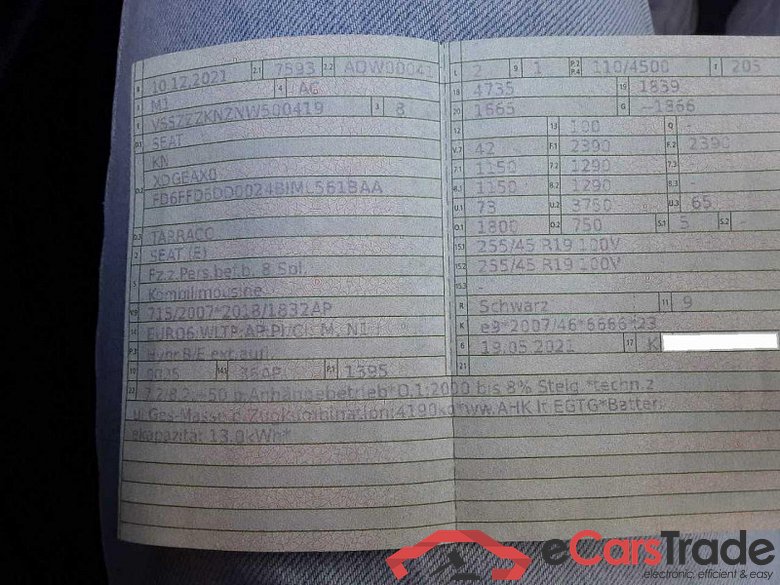 B 10.12.2021 2.1 7593 2.2 ADW00041
J M1 4 AC
E VSSZZZKNZNW500419 3 8
D.1 SEAT
D.2 KN
XDGEAX0
D.3 TARRACO
2 SEAT (E)
5 Fz.z.Pers.bef.b. 8 Spl.
Kombilimousine
V.9 715/2007*2018/1832AP
14 EURO6;WLTP-AP-PI/CI; M, N1 I
P.3 Hybr.B/E ext.aufl.
10 14.1 36AP P.1 1395
22 7.2/8.2: +50 b.Anhängebetrieb*O.1:2000 bis 8% Steig.*techn.z
ul.Ges-Masse d.Zugkombination:4190kg*ww.AHK lt.EGTG*Batteri
ekapazität 13.0kWh*
L 2 9 1 P.2 P.4 110/4500 T 205
18 4735 19 1839
20 1665 G -1866
12 - 13 100 Q -
V.7 42 F.1 2390 F.2 2390
7.1 1150 7.2 1290 7.3 -
8.1 1150 8.2 1290 8.3 -
U.1 73 U.2 3750 U.3 65
O.1 1800 O.2 750 S.1 5 S.2 -
15.1 255/45 R19 100V
15.2 255/45 R19 100V
15.3 -
R Schwarz 11 9
K e9*2007/46*6666*23
6 19.05.2021 17 K
21
eCarsTrade
electronic, efficient & easy